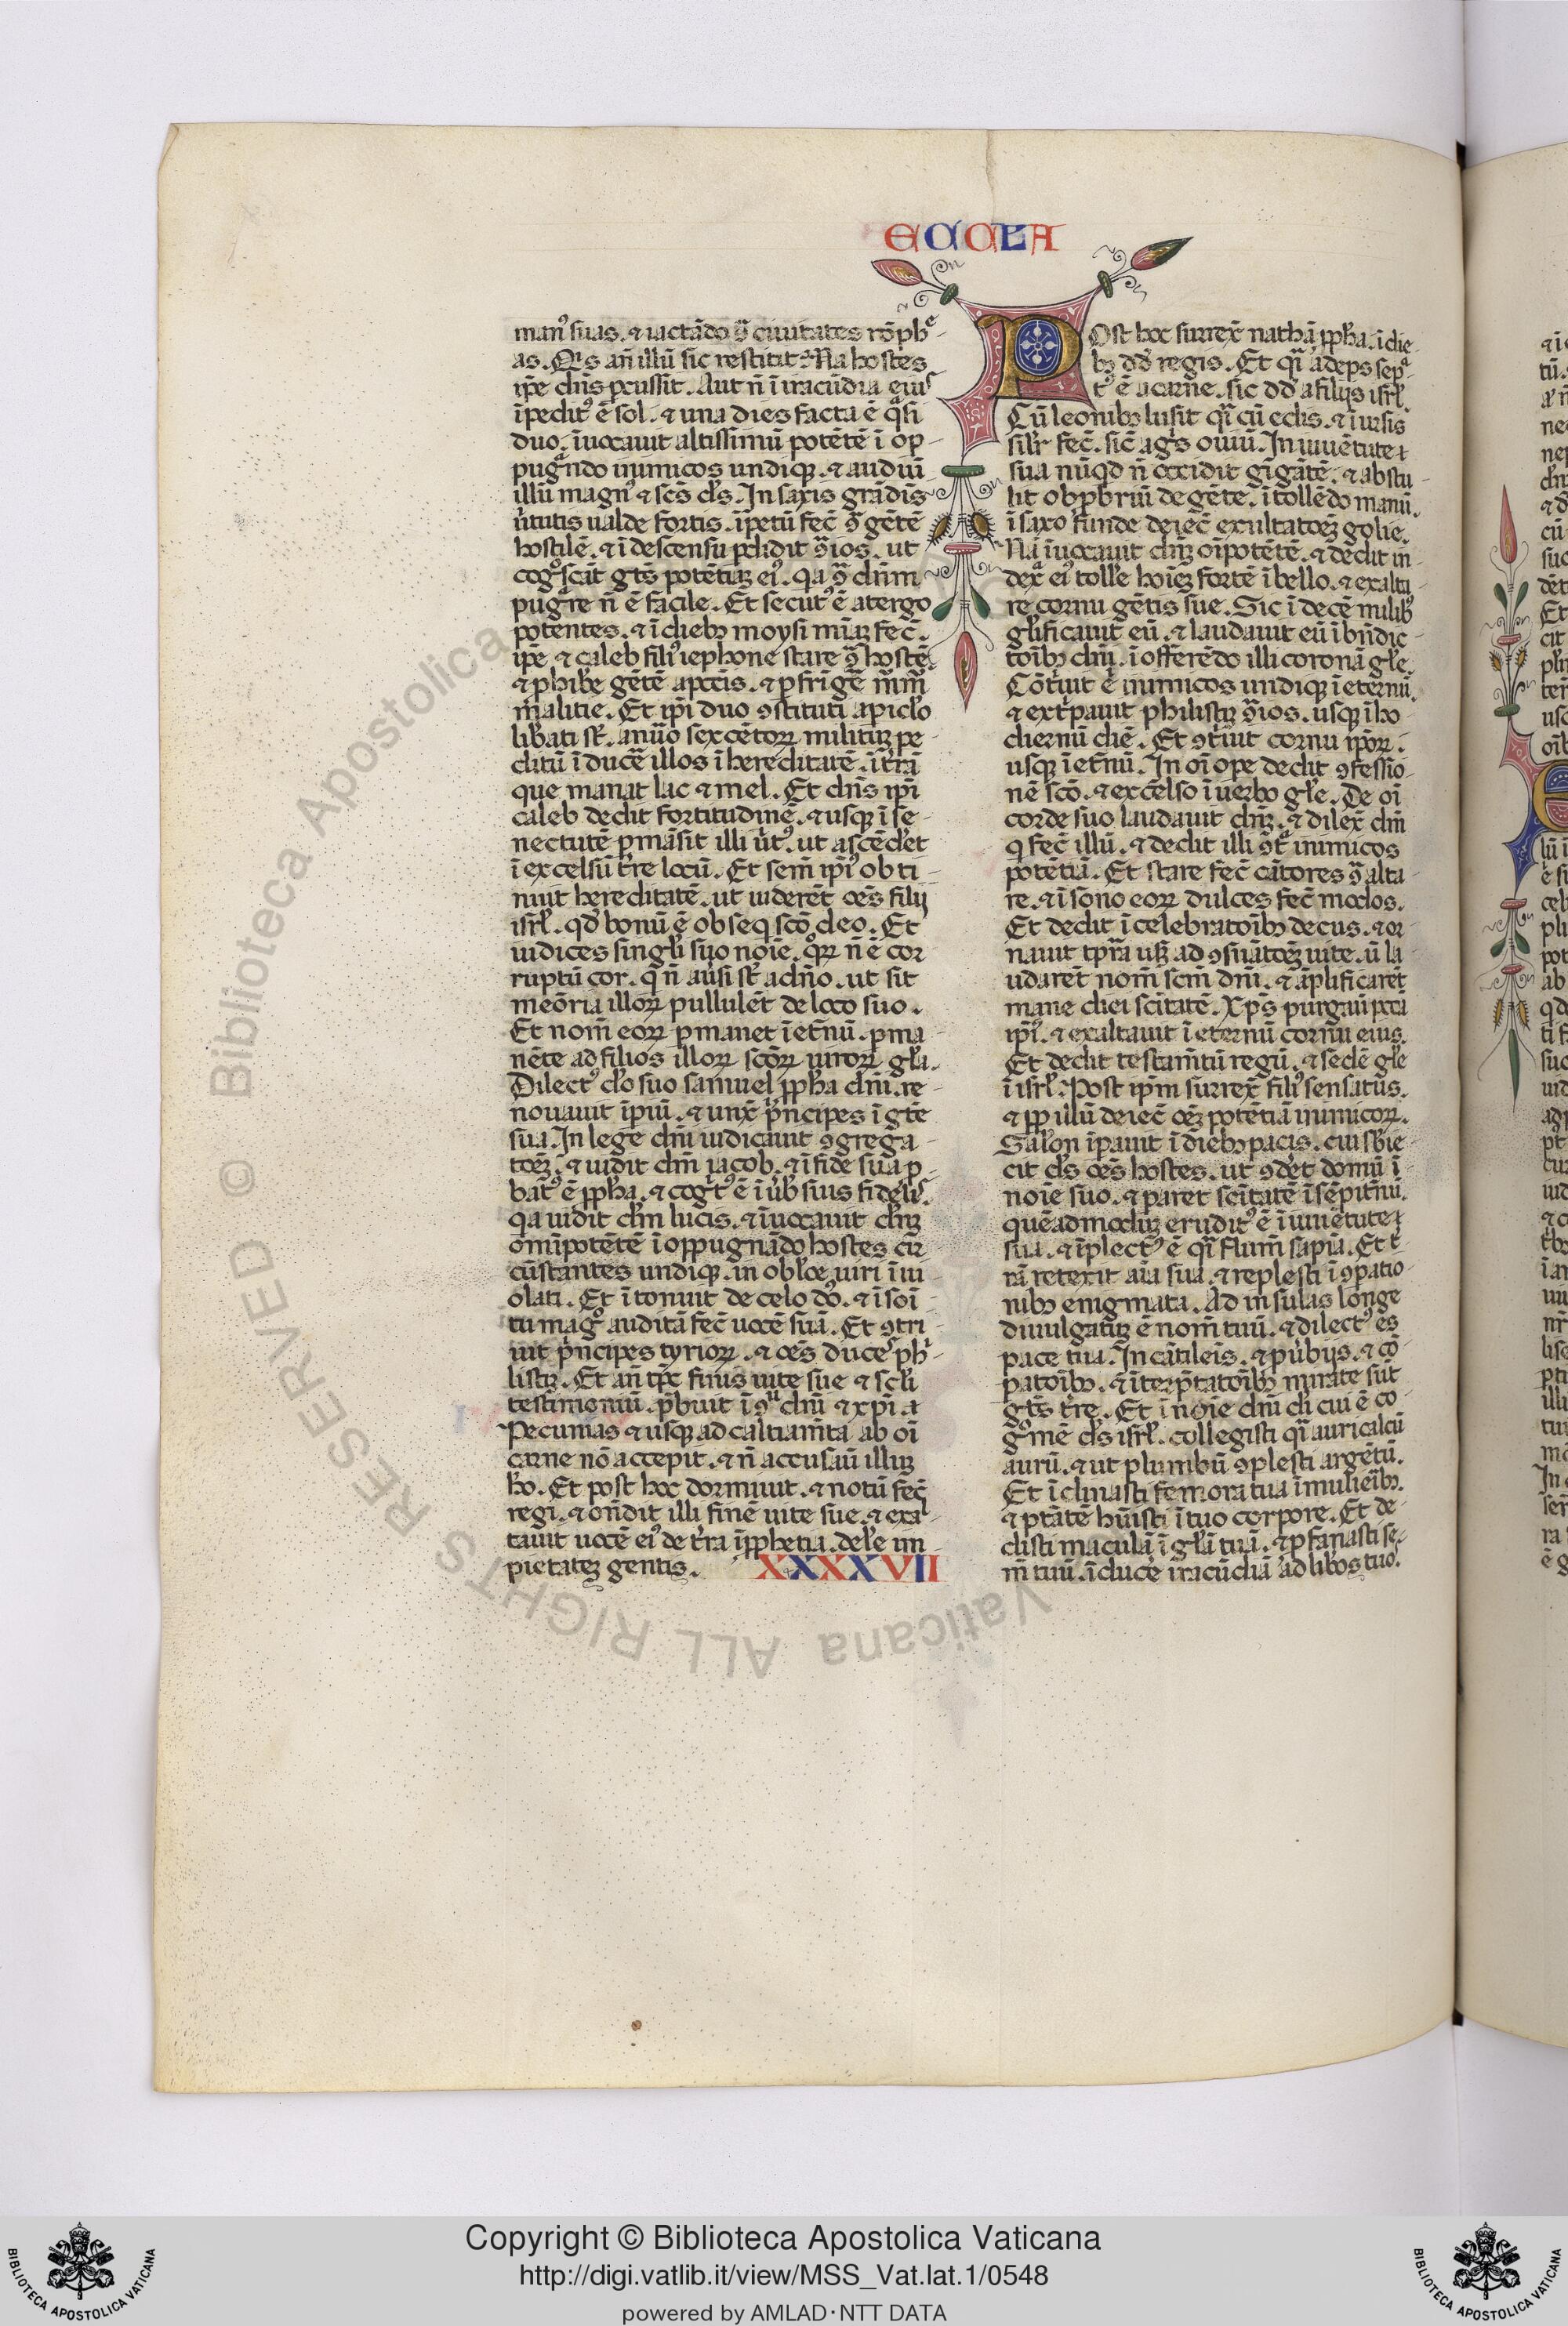 ECCLA
man᷒ suas. ⁊ iactādo ꝯ̄ ciuitates rōphe-
as. Q̄s an̄ illū sic restitit. Na hostes
ip̄e dn̄s ꝑcussit. Aut n̄ ī iracūdia eius
īpedit᷒ ē sol. ⁊ una dies facta ē q̄si
duo. īuocauit altissimū potētē ī op-
pugn̄do inimicos undiqꝫ. ⁊ audiui
illū magn᷒ ⁊ sc̄s d̄s. In saxis grādis
ūtutis ualde fortis. īpetū fec̄ ꝯ̄ gētē
hostilē. ⁊ ī descensu ꝑdidit ꝯ̄ios. ut
cog̊scāt gt̄s potētiaꝫ ei᷒. qa ꝯ̄ dn̄m
pugr̄e n̄ ē facile. Et secut᷒ ē atergo
potentes. ⁊ ī diebꝫ moysi mīaꝫ fec̄.
ip̄e ⁊ caleb fili᷒ iephone stare ꝯ̄ hostē.
⁊ phib̄e gētē apccīs. ⁊ ꝑfrīgē m̄m̄
malitie. Et ip̄i duo ꝯstituti apicl̄o
lib̄ati st̄. anūo sexcētoꝝ militūꝫ pe-
ditū ī duce illos ī hereditatē. ī t̄rā
que manat lac ⁊ mel. Et dn̄s ip̄i
caleb dedit fortitudinē. ⁊ usqꝫ ī se-
nectutē ꝑmāsit illi ūt᷒. ut ascēdet
ī excelsū t̄re locū. Et sem̄ ip̄i᷒ obti-
nuit hereditatē. ut uiderēt oēs filij
isrl̄. qd̄ bonū ē obseq sc̄o deo. Et
iudices singl̄i suo noīe. qoꝝ n̄ ē cor
ruptū cor. q n̄ auersi st̄ adn̄o. ut sit
meōria illoꝝ ⁊ pullulēt de loco suo.
Et nom̄ eoꝝ ꝑmanet ī et̄nū. ꝑma
nēte ad filios illoꝝ scōꝝ uiroꝝ gl̄a.
Dilect᷒ d̄o suo samuel ꝓpha dn̄i. re-
nouauit īpiū. ⁊ unx̄ p̄ncipes ī gt̄e
sua. In lege dn̄i iudicauit ꝯgrega-
toēꝫ. ⁊ uidit dn̄s iacob. ⁊ ī fide sua ꝓ
bat᷒ ē ꝓpha. ⁊ cogt᷒ ē ī ūb suis fidelis.
qa uidit dm̄ lucis. ⁊ īuocauit dn̄ꝫ
omīpotētē ī oppugnādo hostes cir
cūstantes undiqꝫ. in obl̄oe uiri īui
olati. Et ītonuit de celo dn̄s. ⁊ ī soi-
tu magº auditā fec̄ uocē suā. Et ꝯtri-
uit p̄ncipes tyrioꝝ. ⁊ oēs duces phi-
listiꝫ. Et an̄ tp̄ꝫ finis uite sue ⁊ sc̄li
testimoniū p̄buit ī ꝯu dn̄i ⁊ xp̄i ⁊
Pecunias ⁊ usqꝫ ad caltiam̄ta ab oī
carne nō accepit. ⁊ n̄ accusauit illūꝫ
ho. Et post hoc dormiuit. ⁊ notū fec̄
regi. ⁊ on̄dit illi finē uite sue. ⁊ exal-
tauit uocē ei᷒ de t̄ra ī ꝓphetia. del̄e im
pietateꝫ gentis. XXXXVII
Post hoc surrex̄ nathā ꝓpha. ī die-
bꝫ dd̄ regis. Et qī adeps sepa-
t᷒ ē acarne. sic dd̄ afiliis isrl̄.
Cū leonibꝫ lusit qī cū edis. ⁊ ī ursis
sil̄r fec̄. sic̄ agis ouiū. In iuuētute
sua nūqd n̄ occidit gigātē. ⁊ abstu-
lit obprbriū degēte. ī tollēdo manū.
ī saxo funde deiec̄ exultatoēꝫ golie.
Nā īuocauit dn̄ꝫ oīpotētē. ⁊ dedit in-
dex̄ ei᷒ toll̄e hoīeꝫ fortē ī bello. ⁊ exalta
re cornu gētis sue. Sic ī decē milibꝫ
gl̄ificauit eū. ⁊ laudauit eū ī bn̄dic-
toībꝫ dn̄i. ī offerēdo illi coronā gl̄e.
Cōt̄uit ē inimicos undiqꝫ ī eternū.
⁊ ext̄pauit philistiꝫ ꝯ̄ios. usqꝫ ī ho
diernū diē. Et ꝯt̄uit cornu ipoꝝ.
usqꝫ ī et̄nū. In oī oꝑe dedit ꝯfessio-
nē sc̄o. ⁊ excelso ī uerbo gl̄e. De oī
corde suo laudauit dn̄ꝫ. ⁊ dilex̄ dm̄
q fec̄ illū. ⁊ dedit illi ꝯt̄ inimicos
potētiā. Et stare fec̄ cātores ꝯ̄ alta-
re. ⁊ ī sono eoꝝ dulces fec̄ modos.
Et dedit ī celebratoībꝫ decus. ⁊ or
nauit tpr̄a usqꝫ ad ꝯsumatoēꝫ uite. ut la
udarēt nom̄ scm̄ dn̄i. ⁊ āplificarēt
mane diei sc̄itatē. Xp̄s purgauit pcca
ip̄i᷒. ⁊ exaltauit ī eternū cornu eius.
Et dedit testam̄tū regū. ⁊ sedē gl̄e
ī isrl̄. Post ip̄m surrex̄ fili᷒ sensatus.
⁊ ꝓp illū deiec̄ oēꝫ potētiā inimicoꝝ.
Salōn īpauit ī diebꝫ pacis. cui sb̄ie
cit d̄s oēs hostes. ut ꝯdēt domū ī
noīe suo. ⁊ paret sc̄itatē ī sēpit̄nū.
quēadmoduꝫ erudit᷒ ē ī iuuētute
sua. ⁊ īplect᷒ ē qī flum̄ sapīa. Et t̄
rā retexit aīa sua. ⁊ replesti ī ꝯpatio
nibꝫ enigmata. Ad insulas longe
diuulgatūꝫ ē nom̄ tuū. ⁊ dilect᷒ es
pace tua. In cātileis. ⁊ ꝓūbijs. ⁊ cō
patoībꝫ. ⁊ īterp̄tatoībꝫ mirate sūt
gt̄s t̄re. Et ī noīe dn̄i di cui ē co
gºmē d̄s isrl̄. collegisti qī auricalcū
aurū. ⁊ ut plumbū ꝯplesti argētū.
Et īclinasti femora tua ī mulieībꝫ.
⁊ ptātē hūisti ī tuo corpore. Et de-
disti maculā ī gl̄a tua. ⁊ ꝓfanasti se-
m̄ tuū. ī duce iracūdiā ad libos tuos.
© Biblioteca Apostolica Vaticana ALL RIGHTS RESERVED
Copyright © Biblioteca Apostolica Vaticana
http://digi.vatlib.it/view/MSS_Vat.lat.1/0548
powered by AMLAD·NTT DATA
BIBLIOTECA APOSTOLICA VATICANA
BIBLIOTECA APOSTOLICA VATICANA